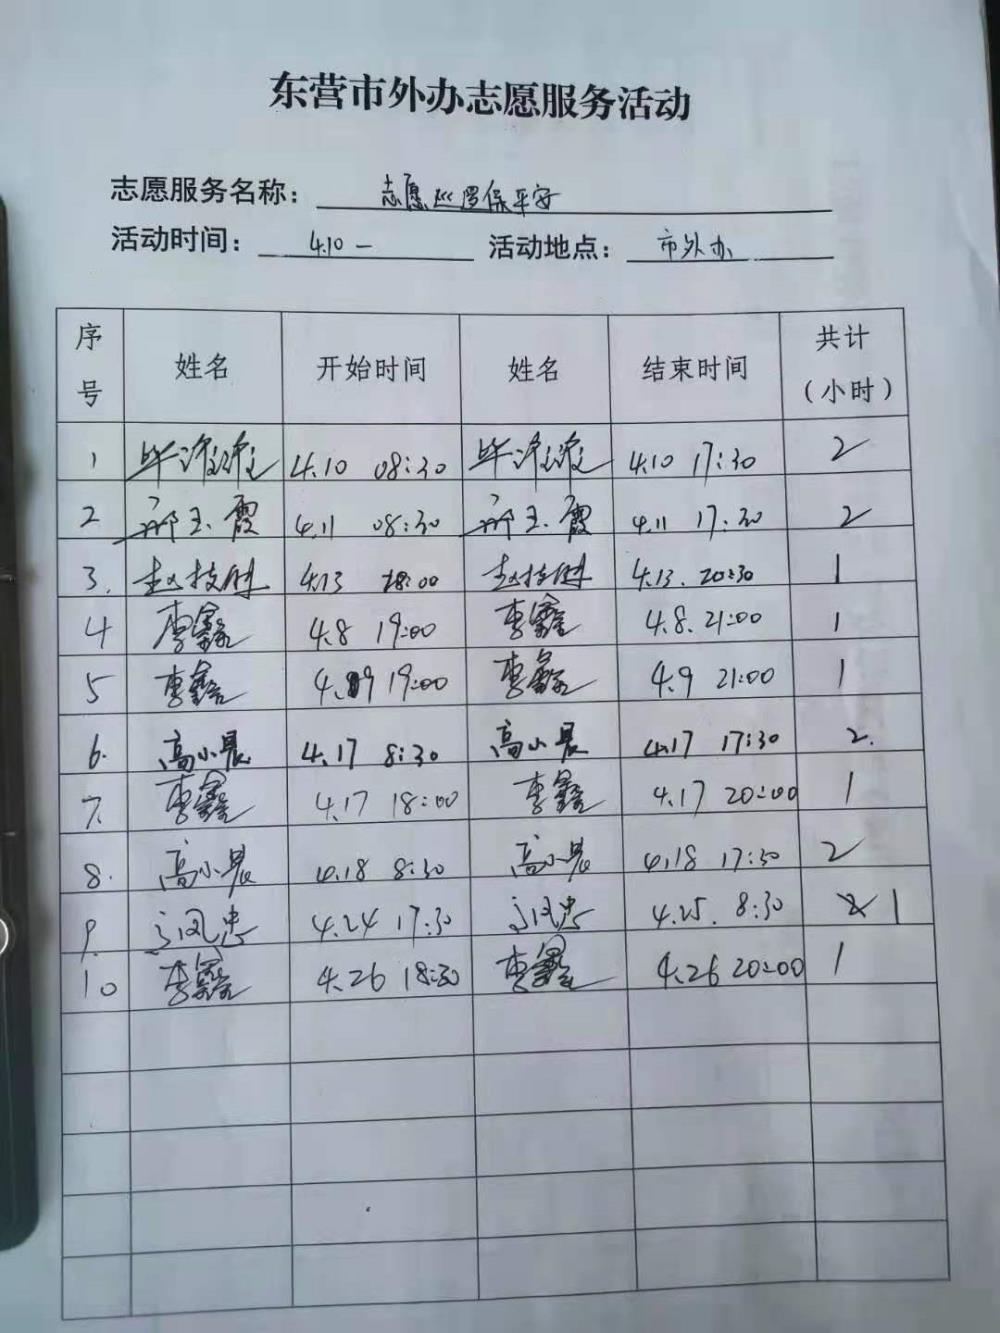 东营市外办志愿服务活动
志愿服务名称： 志愿巡逻保平安
活动时间： 4.10 — 活动地点： 市外办
序号 姓名 开始时间 姓名 结束时间 共计（小时）
1 4.10 08:30 4.10 17:30 2
2 邢玉霞 4.11 08:30 邢玉霞 4.11 17:30 2
3. 4.13 18:00 4.13. 20:30 1
4 李鑫 4.8 19:00 李鑫 4.8. 21:00 1
5 李鑫 4.9 19:00 李鑫 4.9 21:00 1
6. 高小晨 4.17 8:30 高小晨 4.17 17:30 2.
7. 李鑫 4.17 18:00 李鑫 4.17 20:00 1
8. 高小晨 4.18 8:30 高小晨 4.18 17:30 2
9. 4.24 17:30 4.25. 8:30 1
10 李鑫 4.26 18:30 李鑫 4.26 20:00 1